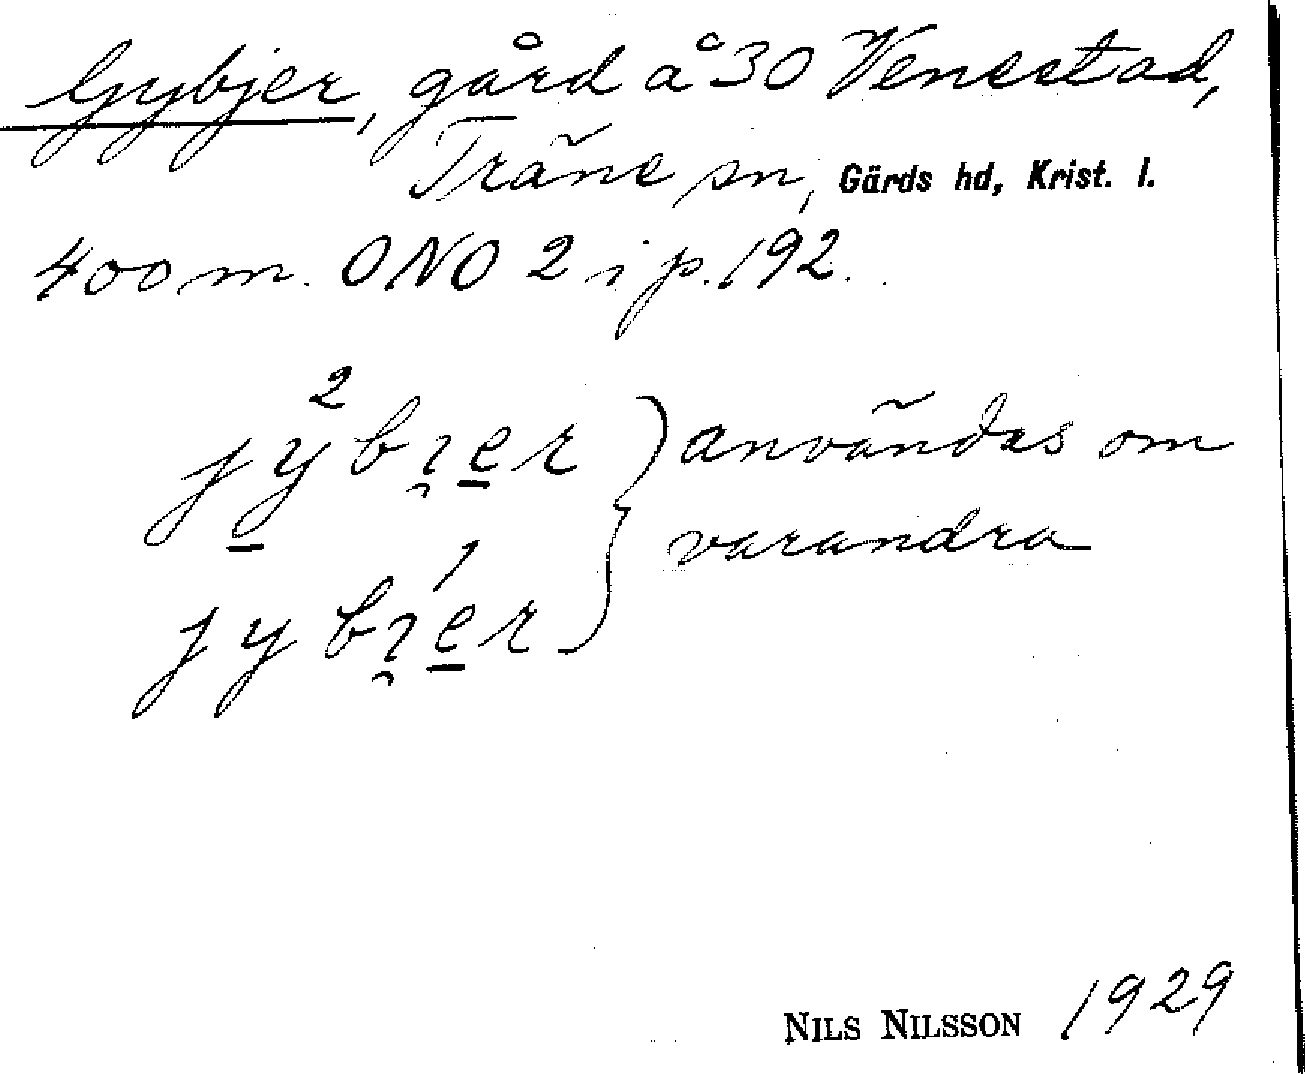 Gybjer, gård å 30 Venestad,
Träne sn, Gärds hd, Krist. l.
400 m. ONO 2 i p. 192.
2
jy̲bı̯e̲r } användas om
varandra
jybı̯é̲r
NILS NILSSON 1929